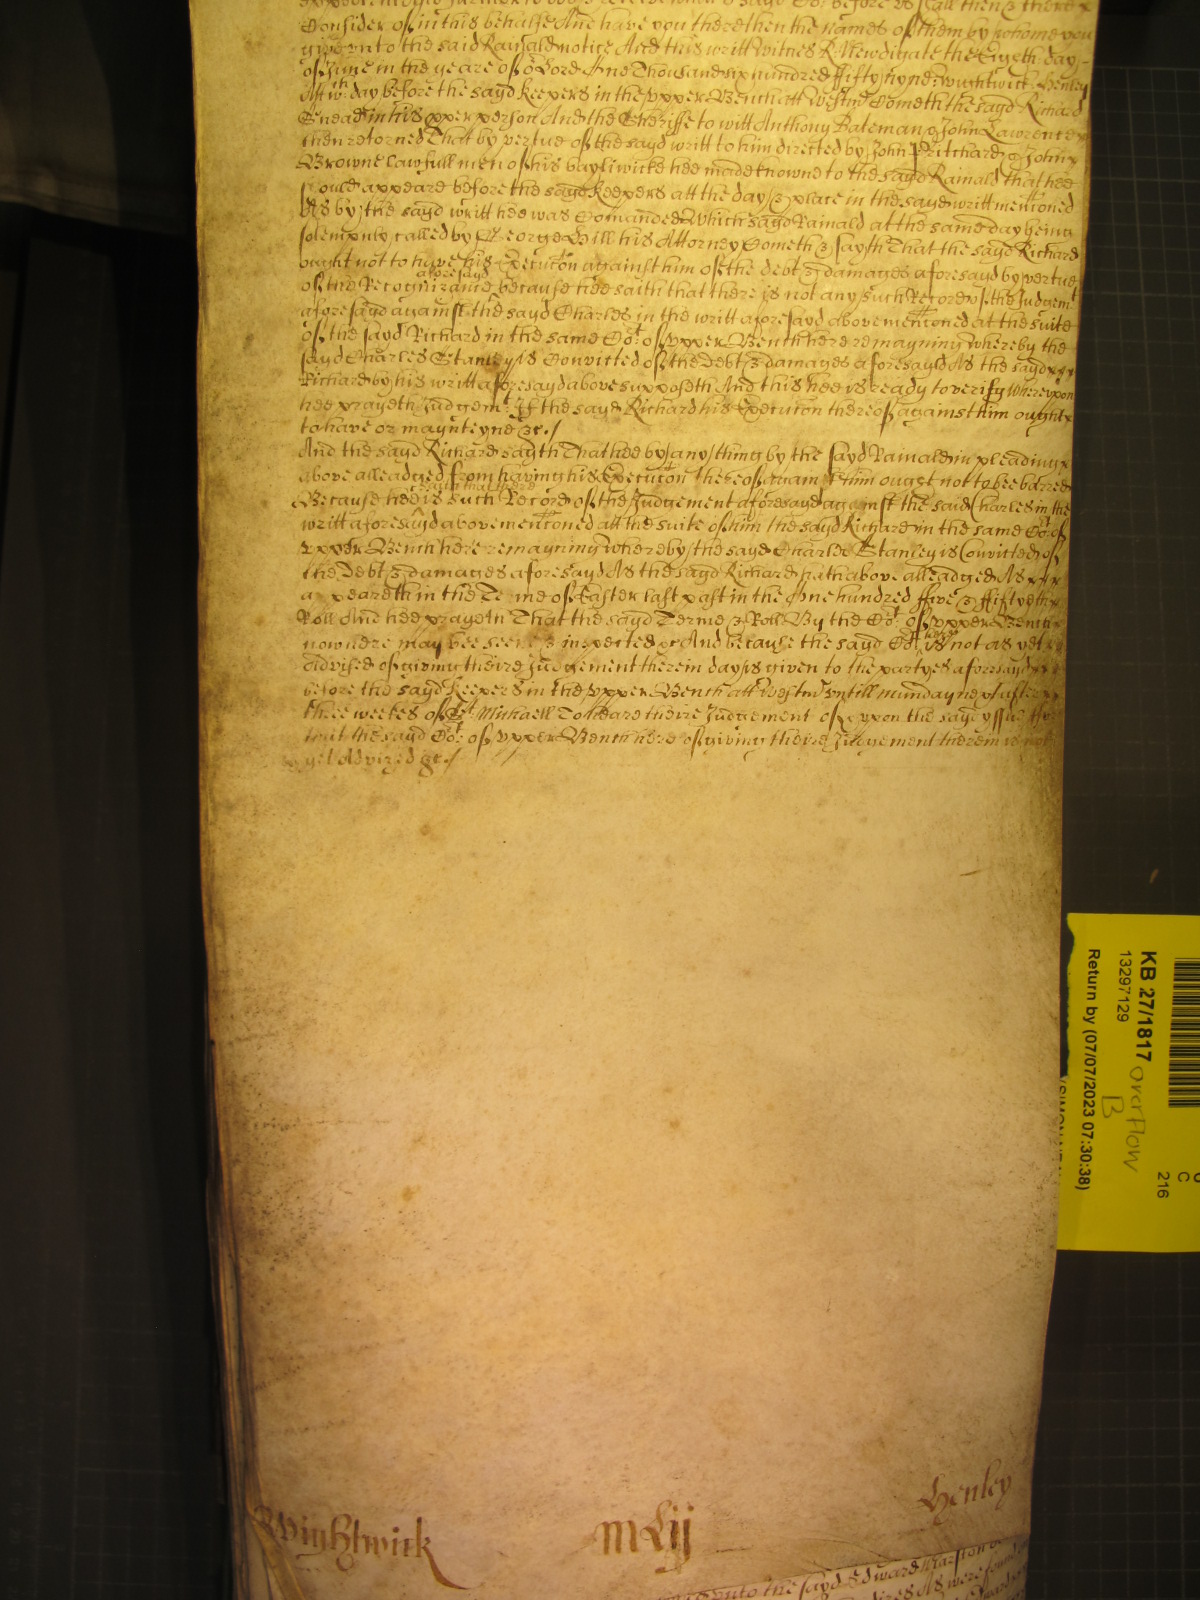 Consider of in this behalfe And have you there then the names of them by whome you
give unto the said Rainald notice And this writt Witnes R: Newdigate the Eigth day
of June in the yeare of o Lord One Thousand six hundred fifty nyne: Wightwick: Henley
Att wch day before the sayd Keepers in the upper Bench att Westmr Cometh the sayd Richard
Snead in his pper person And the Sheriffe to witt Anthony Bateman & John Lawrence
then retorned That by vertue of the sayd writt to him directed by John Pritchard & John
Browne lawfull men of his bayliwicke hee made knowne to the sayd Rainald that hee
should appeare before the sayd Keepers att the day & place in the sayd writt mentioned
As by the sayd writt hee was Comanded Which sayd Rainald at the same day being
solempnly called by George Hill his Attorney Cometh & sayth That the sayd Richard
ought not to have his Execution against him of the debt & damages aforesayd by vertue
of the Recognizance aforesayd because hee saith that there is not any such Record of the Judgemt
aforesayd against the sayd Charles in the writt aforesayd above mentioned at the suite
of the sayd Richard in the same Cot: of upper Bench here remayning whereby the
sayd Charles Stanley is Convicted of the Debt & damages aforesayd As the sayd
Richard by his writt aforesayd above supposeth And this hee is ready to verify Whereupon
hee prayeth Judgemt: If the sayd Richard his Execution thereof against him ought
to have or maynteyne &c./
And the sayd Richard sayth That hee by any thing by the sayd Rainald in pleading
above alleadged from having his Execution thereof against him ought not to bee barred
Because hee sayth that there is such Record of the Judgement aforesayd against the said Charles in the
writt aforesayd above mentioned att the suite of him the sayd Richard in the same Cot: of
upper Bench here remayning whereby the sayd Charles Stanley is Convicted of
the Debt & damages aforesayd As the sayd Richard hath above alleadged As
appeareth in the Terme of Easter last past in the One hundred ffive & ffiftyeth
Roll And hee prayeth That the sayd Terme & Roll By the Cot: of upper Bench
now here may bee seene & inspected &c And because the sayd Cot: here is not as yet
advised of giving theire Judgement therein day is given to the partyes aforesayd
before the sayd Keepers in the upper Bench att Westmr untill munday next after
three weekes of St Michaell To heare theire Judgement of & uppon the sayd yssue for
that the sayd Cot: of upper Bench here of giving theire Judgement therein is not
yet Advized &c./
Wightwick
mLij
Henley
unto the sayd Edward
As were found
KB 27/1817
13297129
Return by (07/07/2023 07:30:38)
overflow
B
216
C